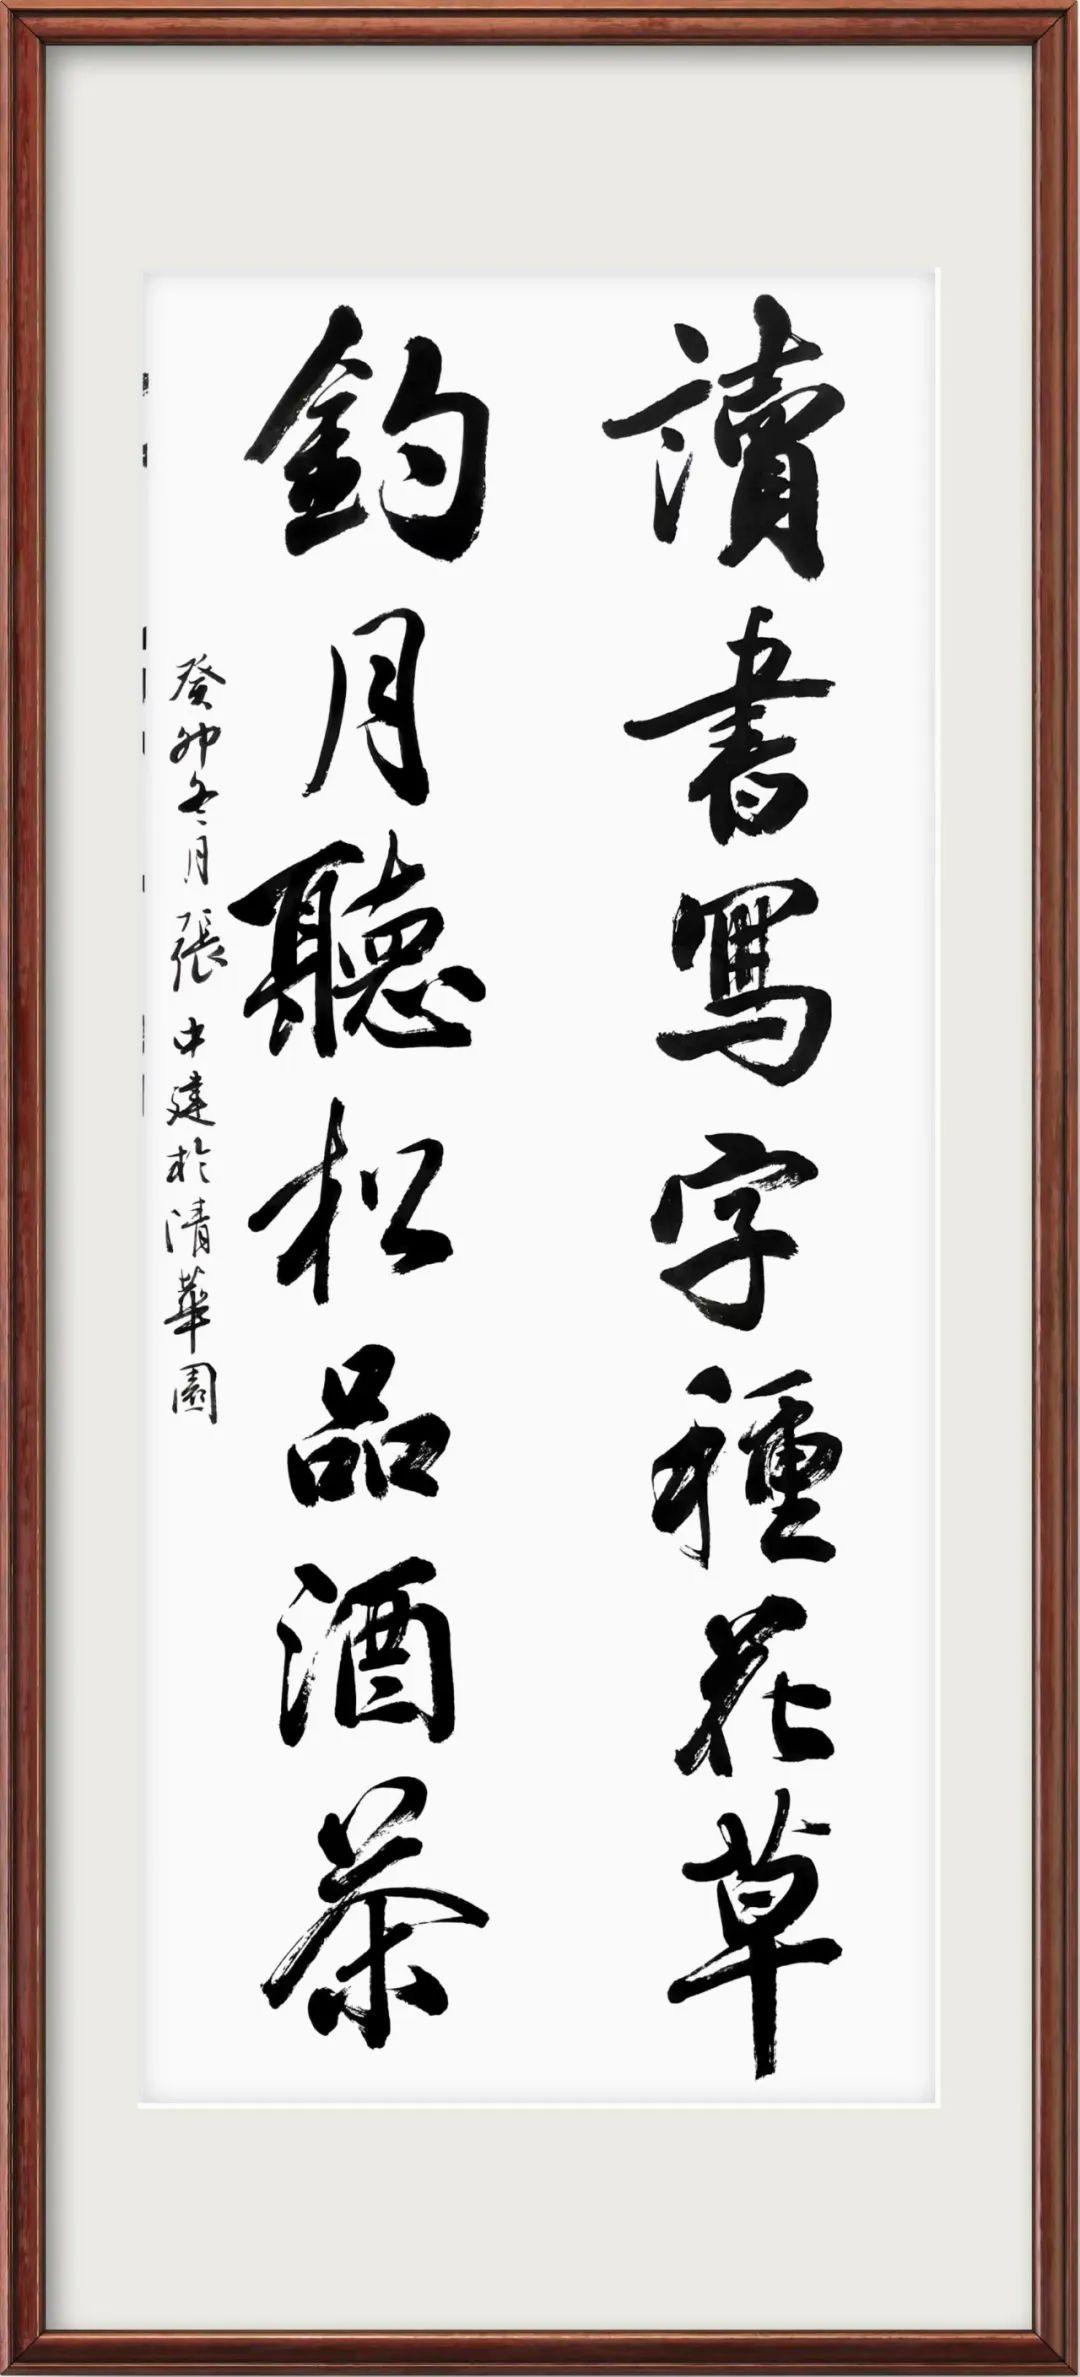 讀書寫字種花草
釣月聽松品酒茶
癸卯冬月張中建於清華園